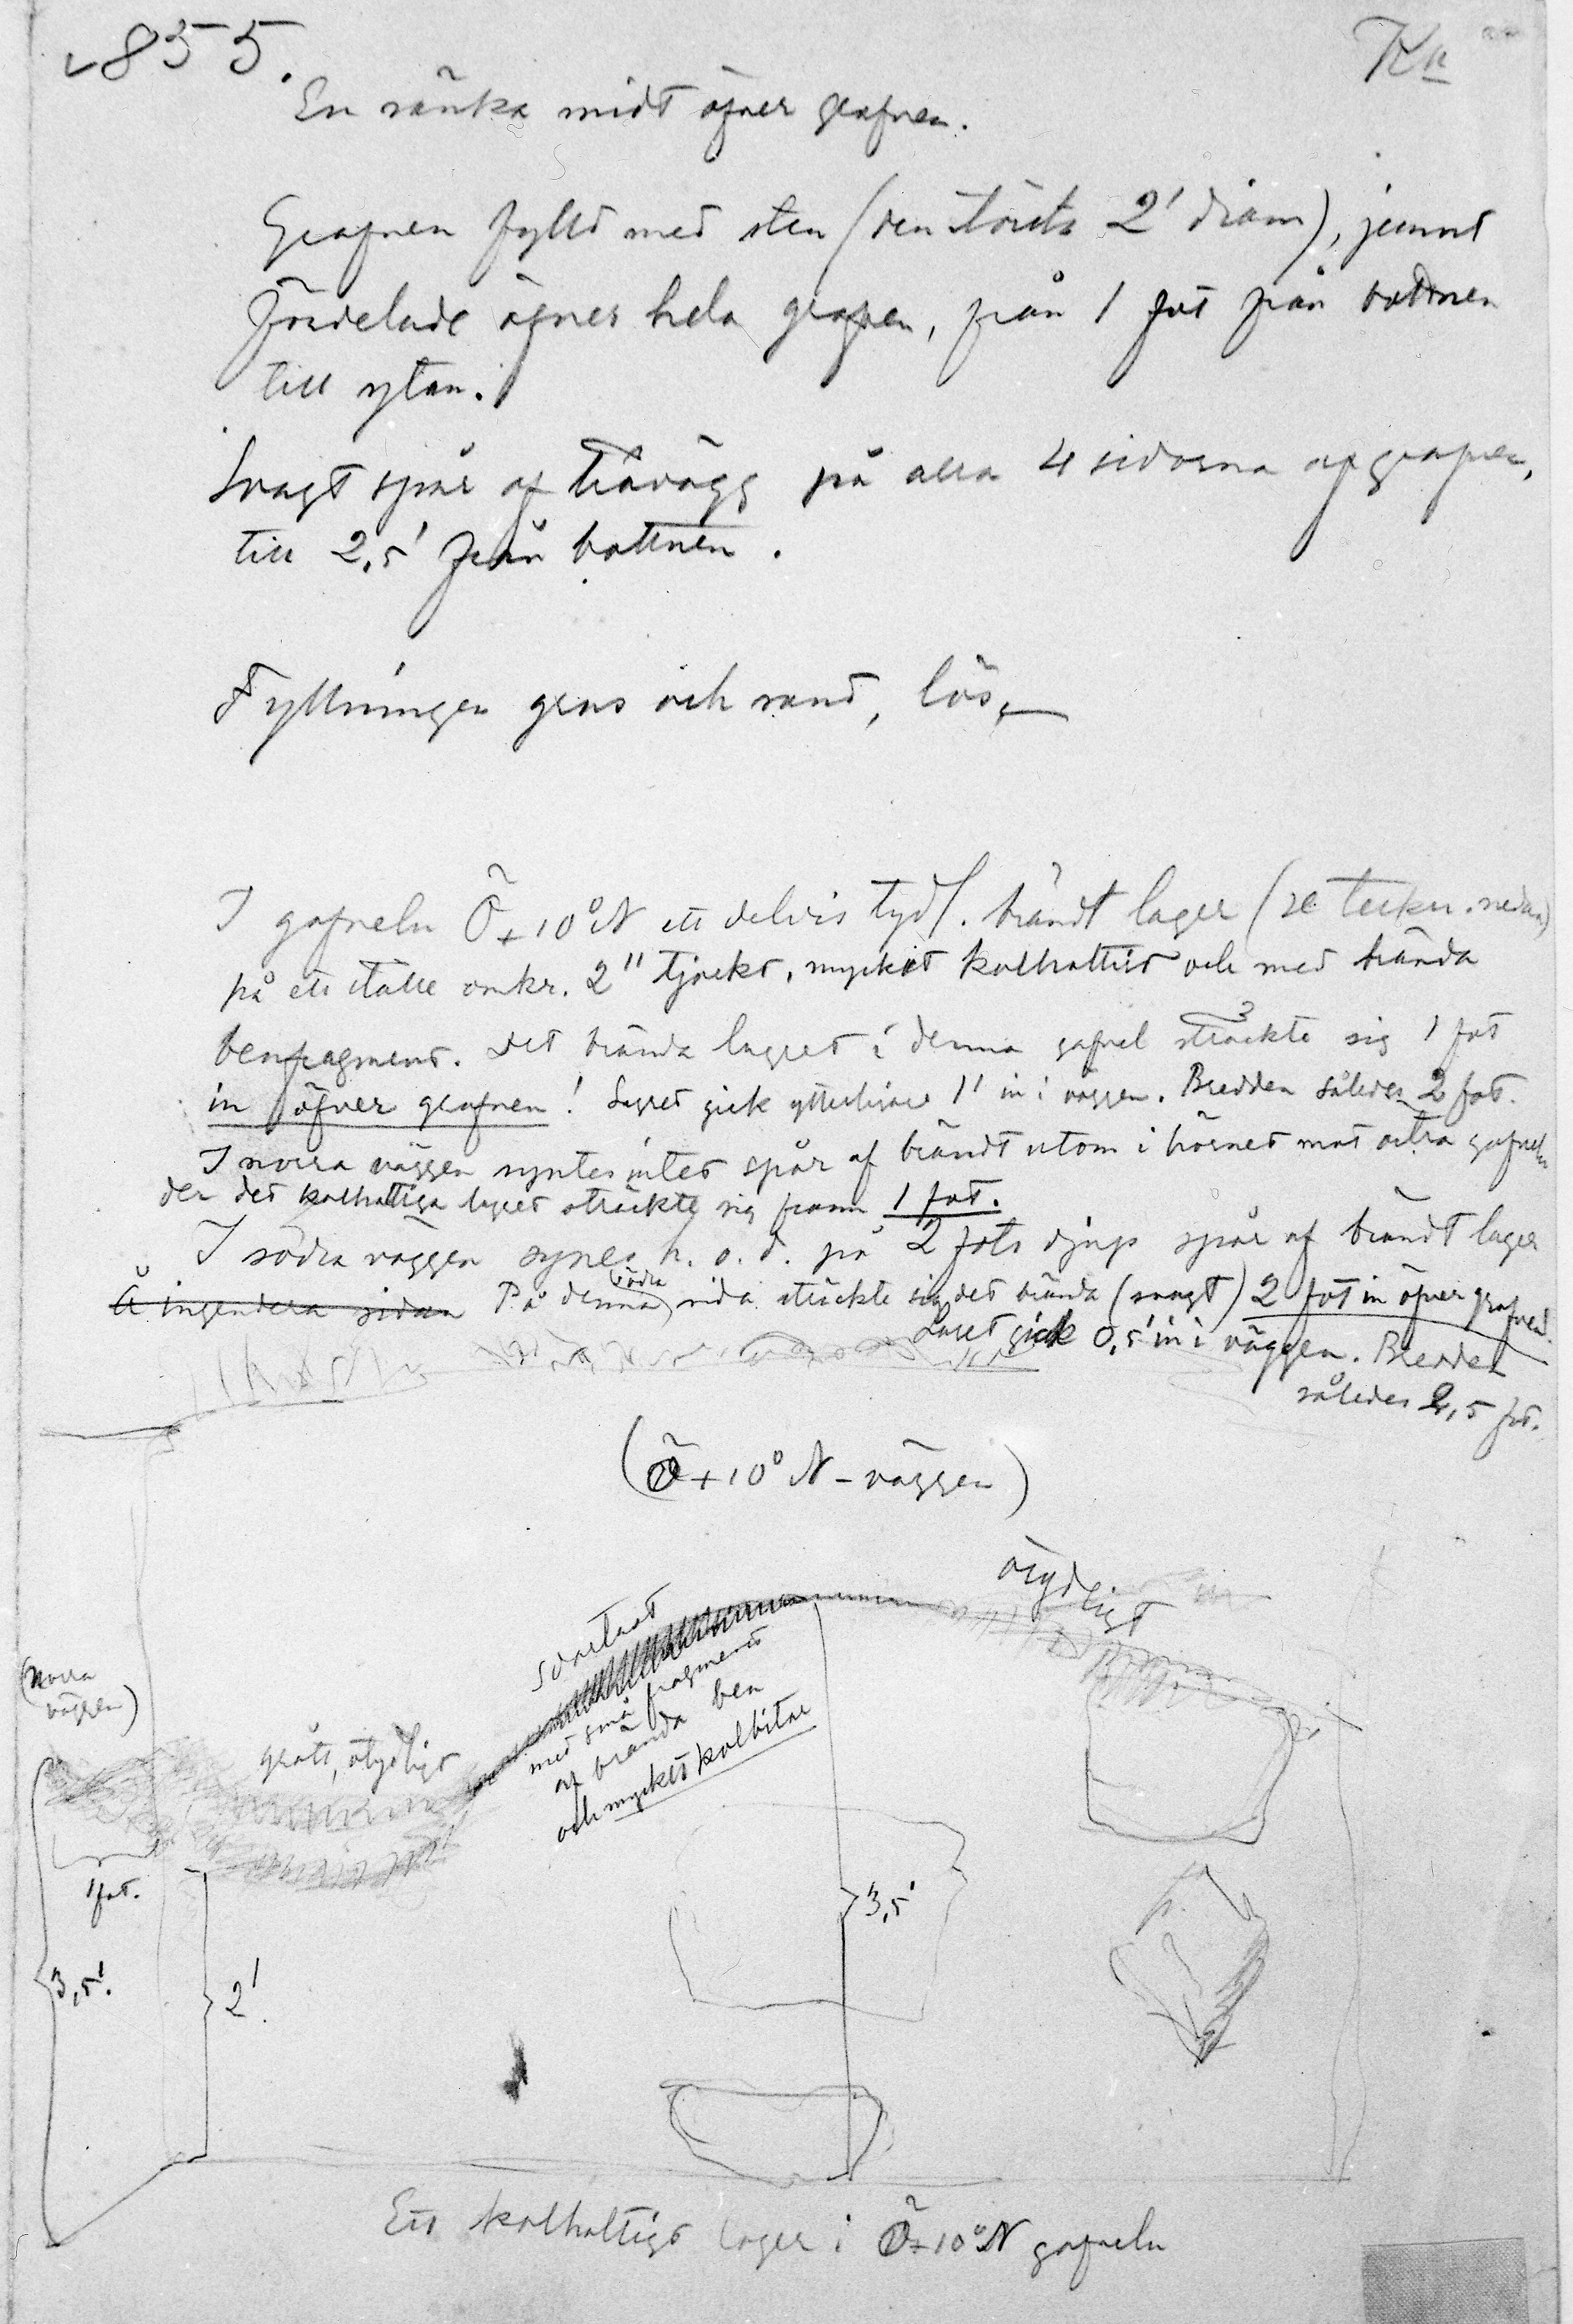 855.
Kn
En sänka midt öfver grafven.
Grafven fylld med sten (den största 2' diam), jemnt
fördelade öfver hela grafven, från 1 fot från bottnen
till ytan.
Svagt spår af trävägg på alla 4 sidorna af grafven,
till 2,5' från bottnen.
Fyllningen grus och sand, lös.
I gafveln Ö+10°N ett delvis tydl. brändt lager (se teckn. nedan)
på ett ställe omkr. 2" tjockt, mycket kolhaltigt och med brända
benfragment. Det brända lagret i denna gafvel sträckte sig 1 fot
in öfver grafven! Lagret gick ytterligare 1' in i väggen. Bredden således 2 fot.
I norra väggen syntes intet spår af brändt utom i hörnet mot östra gafveln
der det kolhaltiga lagret sträckte sig fram 1 fot.
I södra väggen synes h. o. d. på 2 fots djup spår af brändt lager
Å ingendera sidan På denna södra sida sträckte sig det brända (svagt) 2 fot in öfver grafven.
Lagret gick 0,5' in i väggen. Bredden
således 2,5 fot.
(Ö+10°N-väggen)
otydligt
svartast
med små fragment
af brända ben
och mycket kolbitar
(norra
väggen)
grått, otydligt
1 fot.
3,5'
3,5'.
2'.
Ett kolhaltigt lager i Ö+10°N gafveln